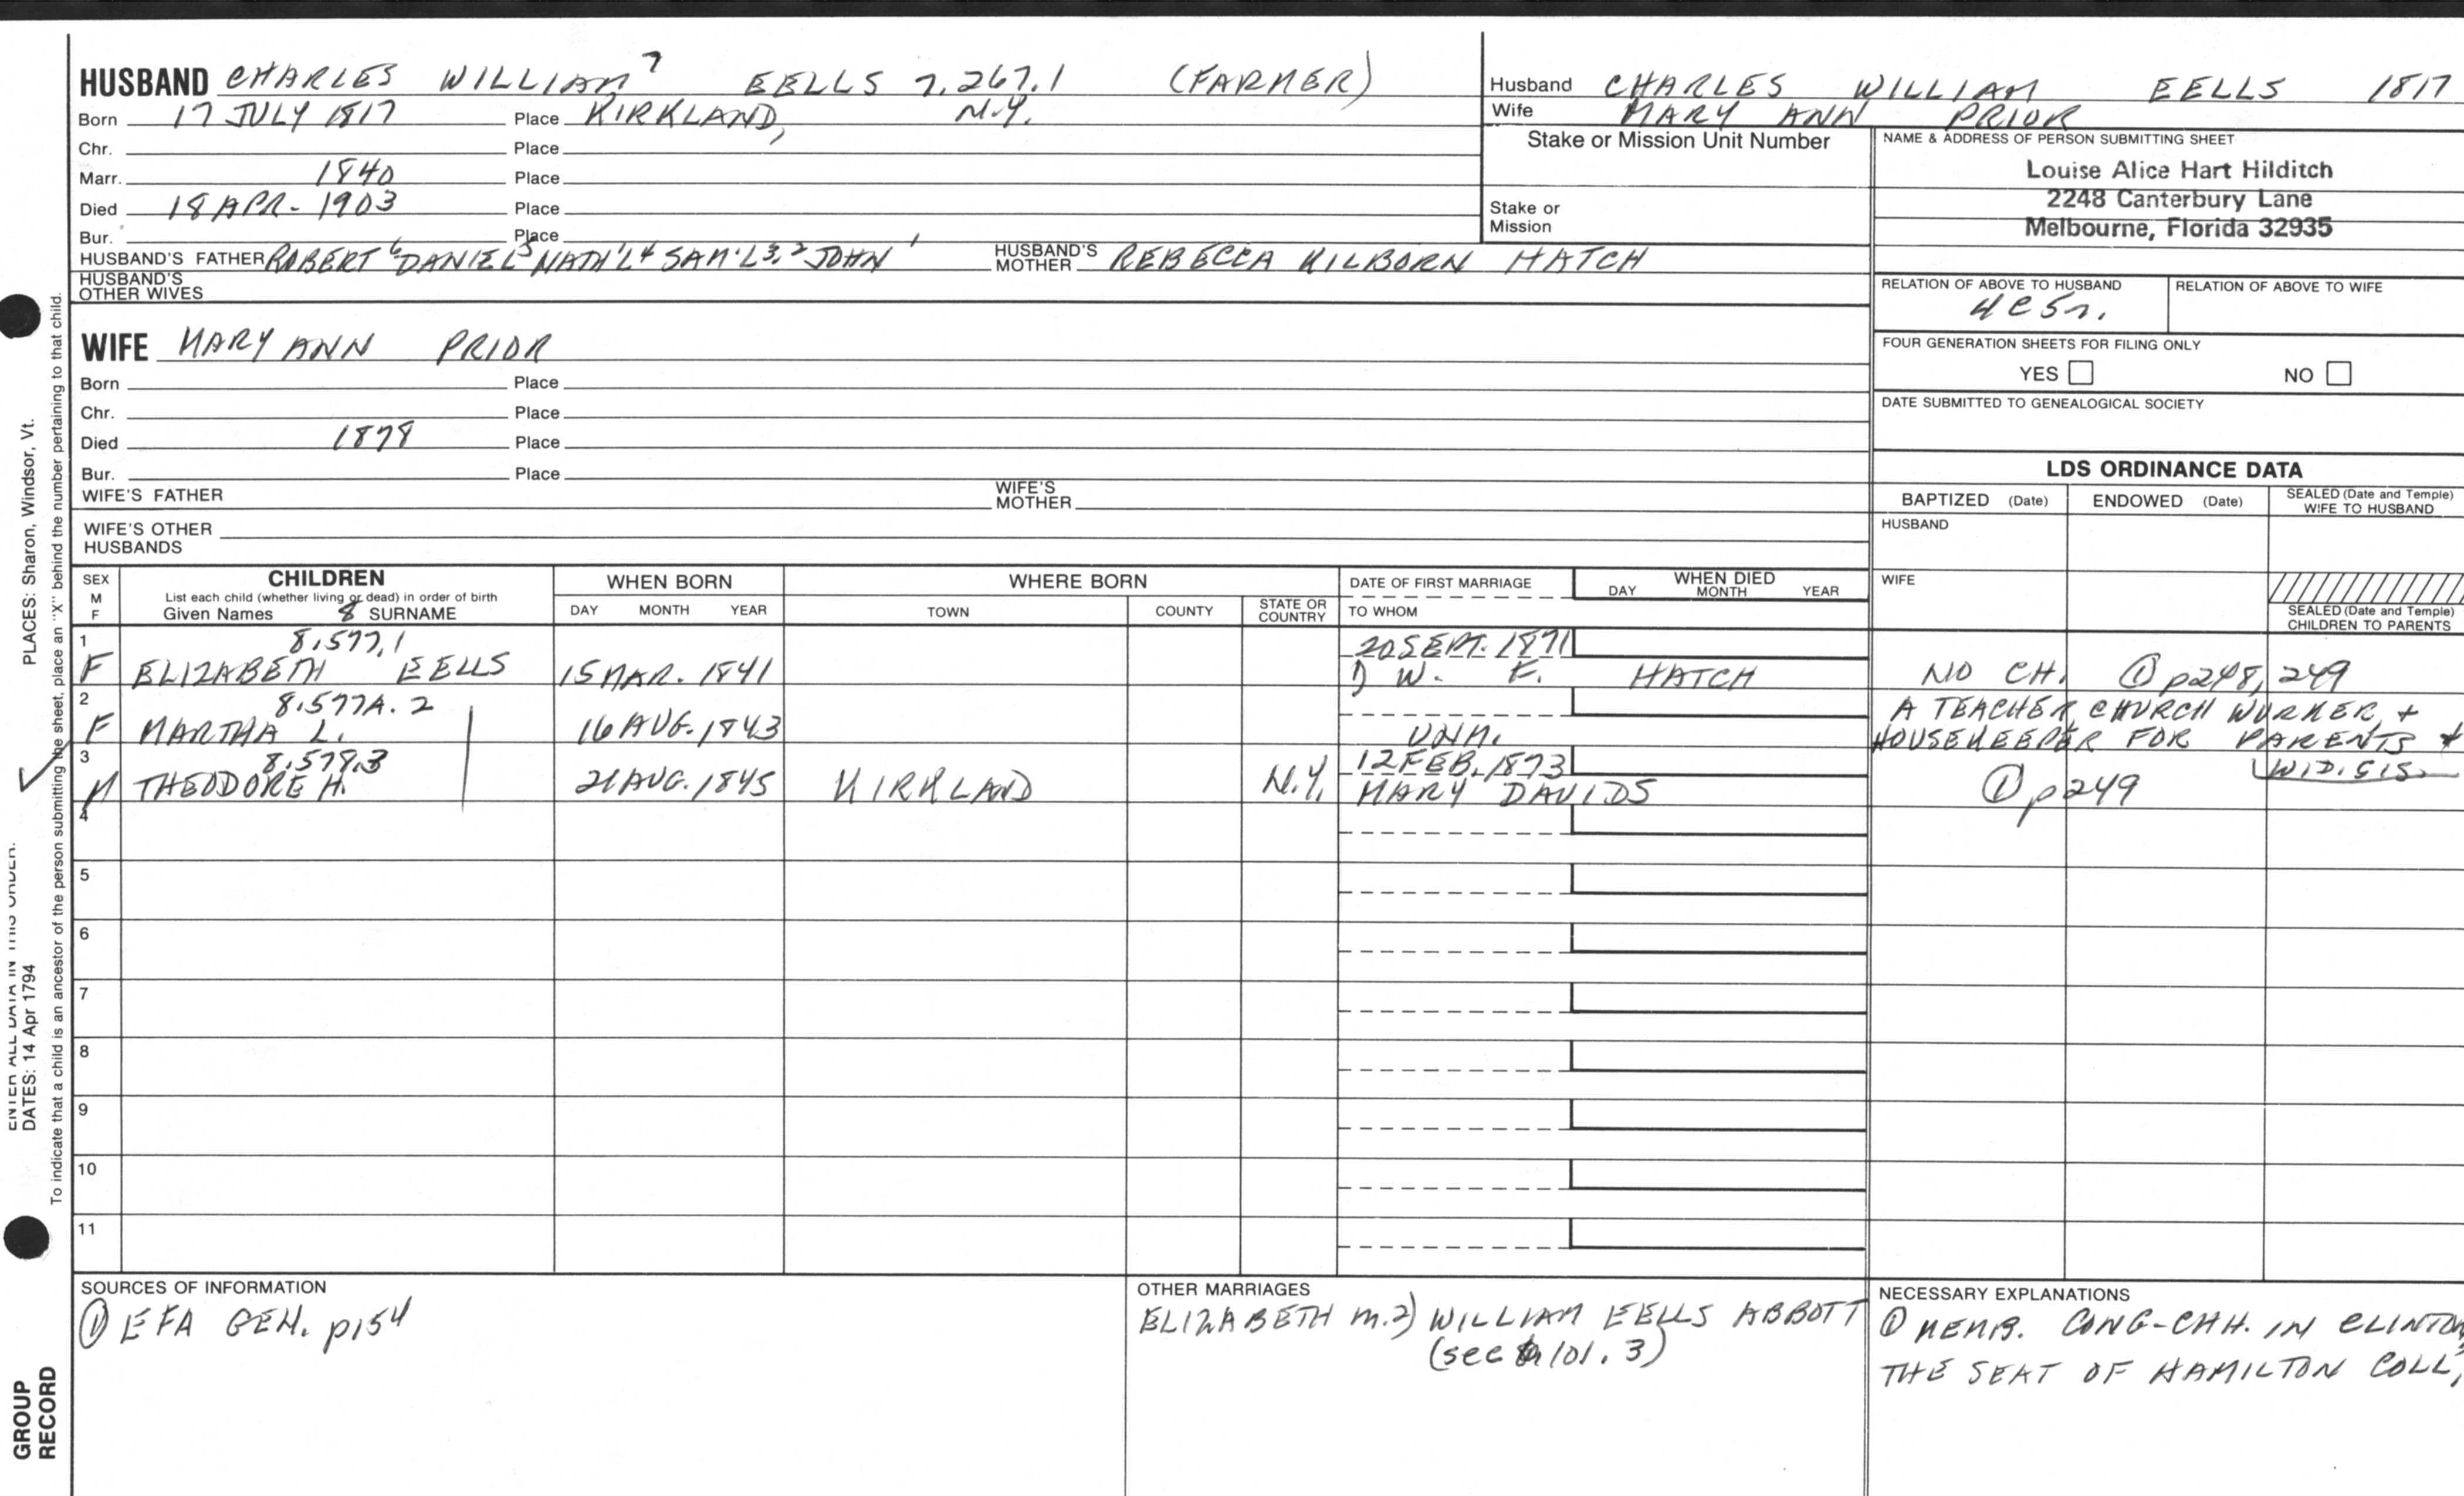 HUSBAND CHARLES WILLIAM 7 EELLS 7.267.1 (FARMER)
Born 17 JULY 1817 Place KIRKLAND, N.Y.
Chr. Place
Marr. 1840 Place
Died 18 APR- 1903 Place
Bur. Place
HUSBAND'S FATHER ROBERT 6 DANIEL 5 NATH'L 4 SAM'L 3, 2 JOHN 1 HUSBAND'S MOTHER REBECCA KILBORN HATCH
HUSBAND'S OTHER WIVES
Husband CHARLES WILLIAM EELLS 1817
Wife MARY ANN PRIOR
Stake or Mission Unit Number
Stake or Mission
NAME & ADDRESS OF PERSON SUBMITTING SHEET
Louise Alice Hart Hilditch
2248 Canterbury Lane
Melbourne, Florida 32935
RELATION OF ABOVE TO HUSBAND RELATION OF ABOVE TO WIFE
4C5r.
FOUR GENERATION SHEETS FOR FILING ONLY
YES NO
DATE SUBMITTED TO GENEALOGICAL SOCIETY
WIFE MARY ANN PRIOR
Born Place
Chr. Place
Died 1878 Place
Bur. Place
WIFE'S FATHER WIFE'S MOTHER
WIFE'S OTHER HUSBANDS
LDS ORDINANCE DATA
BAPTIZED (Date) ENDOWED (Date) SEALED (Date and Temple) WIFE TO HUSBAND
HUSBAND
WIFE
SEALED (Date and Temple) CHILDREN TO PARENTS
SEX M F
CHILDREN
List each child (whether living or dead) in order of birth
Given Names 8 SURNAME
WHEN BORN
DAY MONTH YEAR
WHERE BORN
TOWN COUNTY STATE OR COUNTRY
DATE OF FIRST MARRIAGE
TO WHOM
WHEN DIED
DAY MONTH YEAR
1 8.577.1 20 SEPT. 1871
F ELIZABETH EELLS 15 MAR. 1841 1) W. F. HATCH NO CH. ① p248, 249
2 8.577A.2 A TEACHER, CHURCH WORKER, +
F MARTHA L. 16 AUG. 1843 UNM. HOUSEKEEPER FOR PARENTS +
WID. SIS.
3 8.578.3 12 FEB. 1873
M THEODORE H. 21 AUG. 1845 KIRKLAND N.Y. MARY DAVIDS ① p249
4
5
6
7
8
9
10
11
SOURCES OF INFORMATION
① EFA GEN. p154
OTHER MARRIAGES
ELIZABETH m. 2) WILLIAM EELLS ABBOTT
(see 101.3)
NECESSARY EXPLANATIONS
① MEMB. CONG-CHH. IN CLINTON,
THE SEAT OF HAMILTON COLL,
PLACES: Sharon, Windsor, Vt.
ENTER ALL DATA IN THIS ORDER.
DATES: 14 Apr 1794
To indicate that a child is an ancestor of the person submitting the sheet, place an "X" behind the number pertaining to that child.
GROUP
RECORD